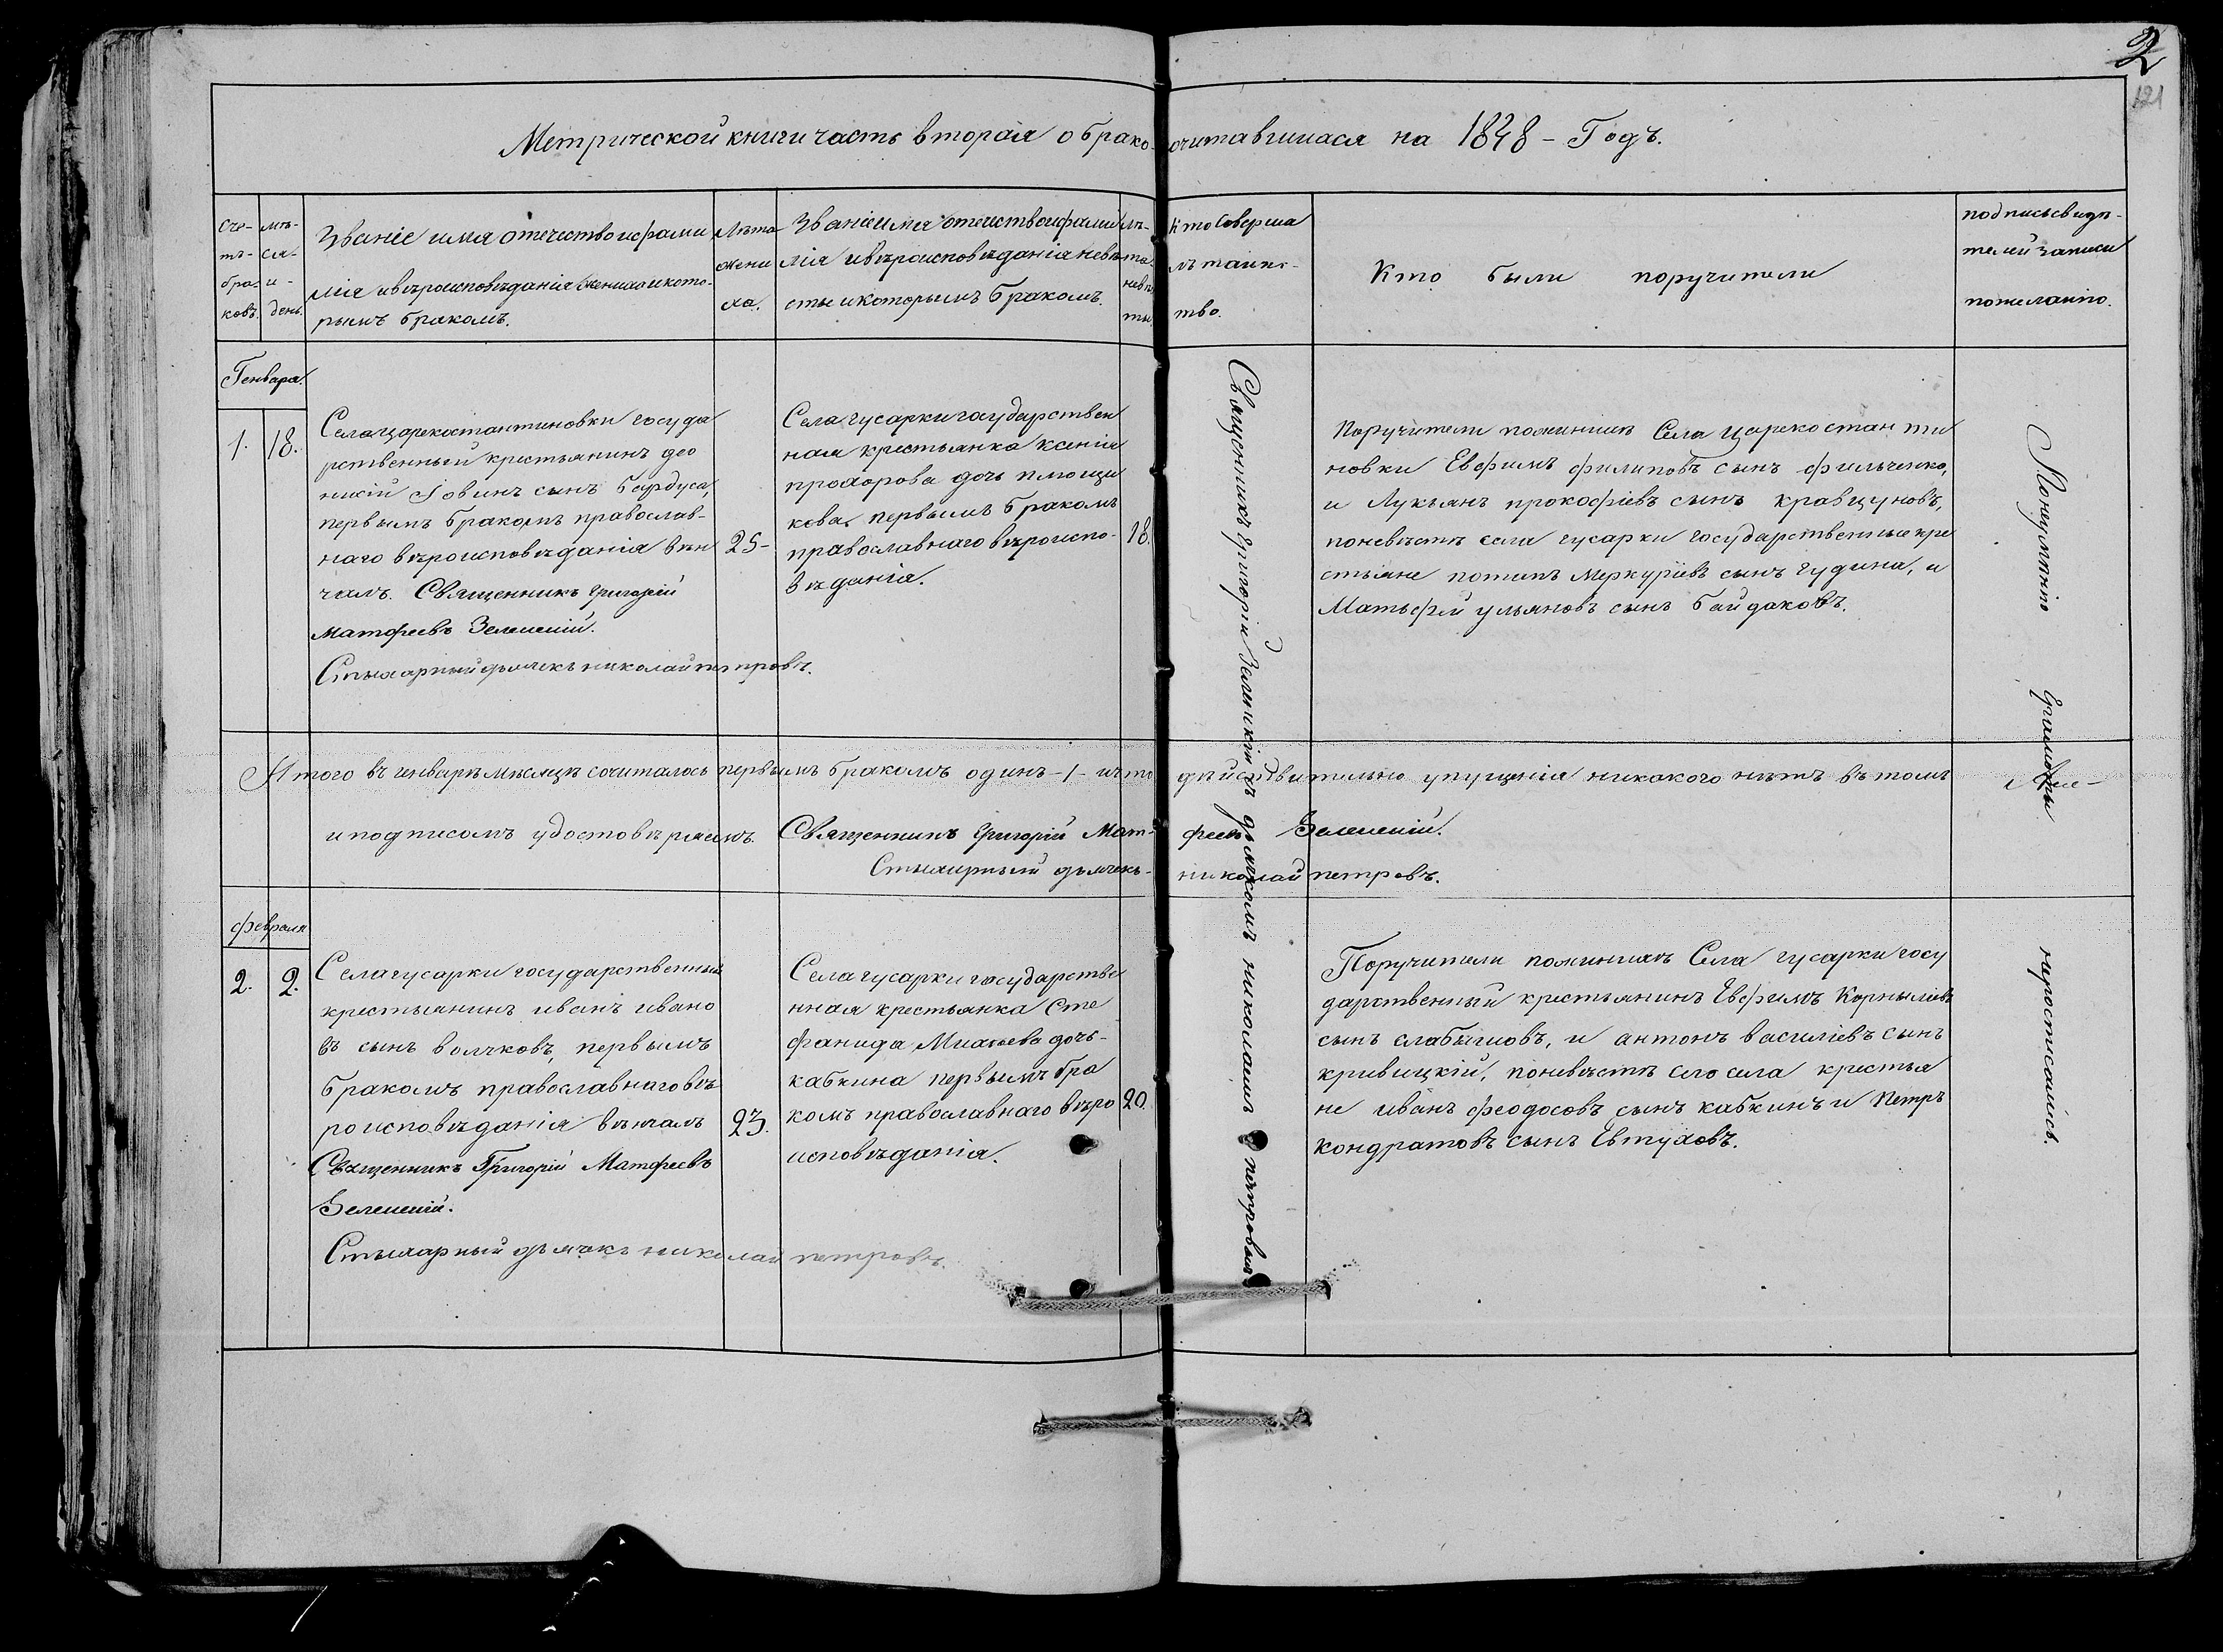 2
121
Метрической книги часть вторая о брако-очитавшихася на 1848 – Годъ.
Сче-
тъ-
бра-
ковъ.
мѣ-
ся-
и-
день.
Званіе имя отечество и фами
лія и вѣроисповѣданія жениха и кото-
рымъ бракомъ.
Лѣта
жени
ха.
Званіе имя отечество и фами
лія и вѣроисповѣданія невѣ
сты и которымъ бракомъ.
лѣ-
та.
невѣ
ты.
Кто соверша
лъ таинс-
тво.
Кто были поручители
подпись свидѣ-
телей записи
по желанію.
Генваря.
1. 18.
Села царекостантиновки госуда
рственный крестьянинъ део
нисій Іовинъ сынъ бардуса,
первымъ бракомъ православ-
наго вѣроисповѣданія вѣн
чалъ. Священникъ Григорій
Матфеевъ Зеленскій.
Стыхарный дьячекъ николай петровъ.
25-
Села гусарки государствен
ная крестьянка ксенія
прохорова дочь
кова, первымъ бракомъ
православнаго вѣроиспо-
вѣданія.
18.
Священникъ Григорій Зеленскій съ дьячкомъ николаимъ петровымъ
Поручители по женихѣ Села Царекостанти
новки Евфимъ филиповъ сынъ фильченко,
и Лукьянъ прокофіевъ сынъ кравцуновъ,
по невѣстѣ села гусарки государственные кре
стьяне потапъ Меркуріевъ сынъ гудина, и
Матьфей ульяновъ сынъ байдаковъ.
По неумѣнію Грамоты не росписались.
Итого въ генварѣ мѣсяцѣ сочиталось первымъ бракомъ одинъ -1- что дѣйствительно упущенія никакого нѣтъ въ томъ
и подписомъ удостовѣряемъ. Священникъ Григорій Матфеевъ Зеленскій.
Стыхарный дьячекъ- николай петровъ.
февраля
2. 2.
Села гусарки государственный
крестьянинъ иванъ ивано
въ сынъ волчковъ, первымъ
бракомъ православнаго вѣ
роисповѣданія вѣнчалъ
Священникъ Григорій Матфеевъ
Зеленскій.
Стыхарный дьячекъ николай петровъ.
23.
Села гусарки государстве
нная крестьянка Сте
фанида Михаева дочь-
кабкина первымъ бра
комъ православнаго вѣро
исповѣданія.
20.
Поручители по женихѣ Села гусарки госу
дарственный крестьянинъ Евфимъ Корныліевъ
сынъ слабышовъ, и антонъ василіевъ сынъ
кривицкій, по невѣстѣ сего села крестья
не иванъ феодосовъ сынъ кабкинъ и Петръ
кондратовъ сынъ Евтуховъ.